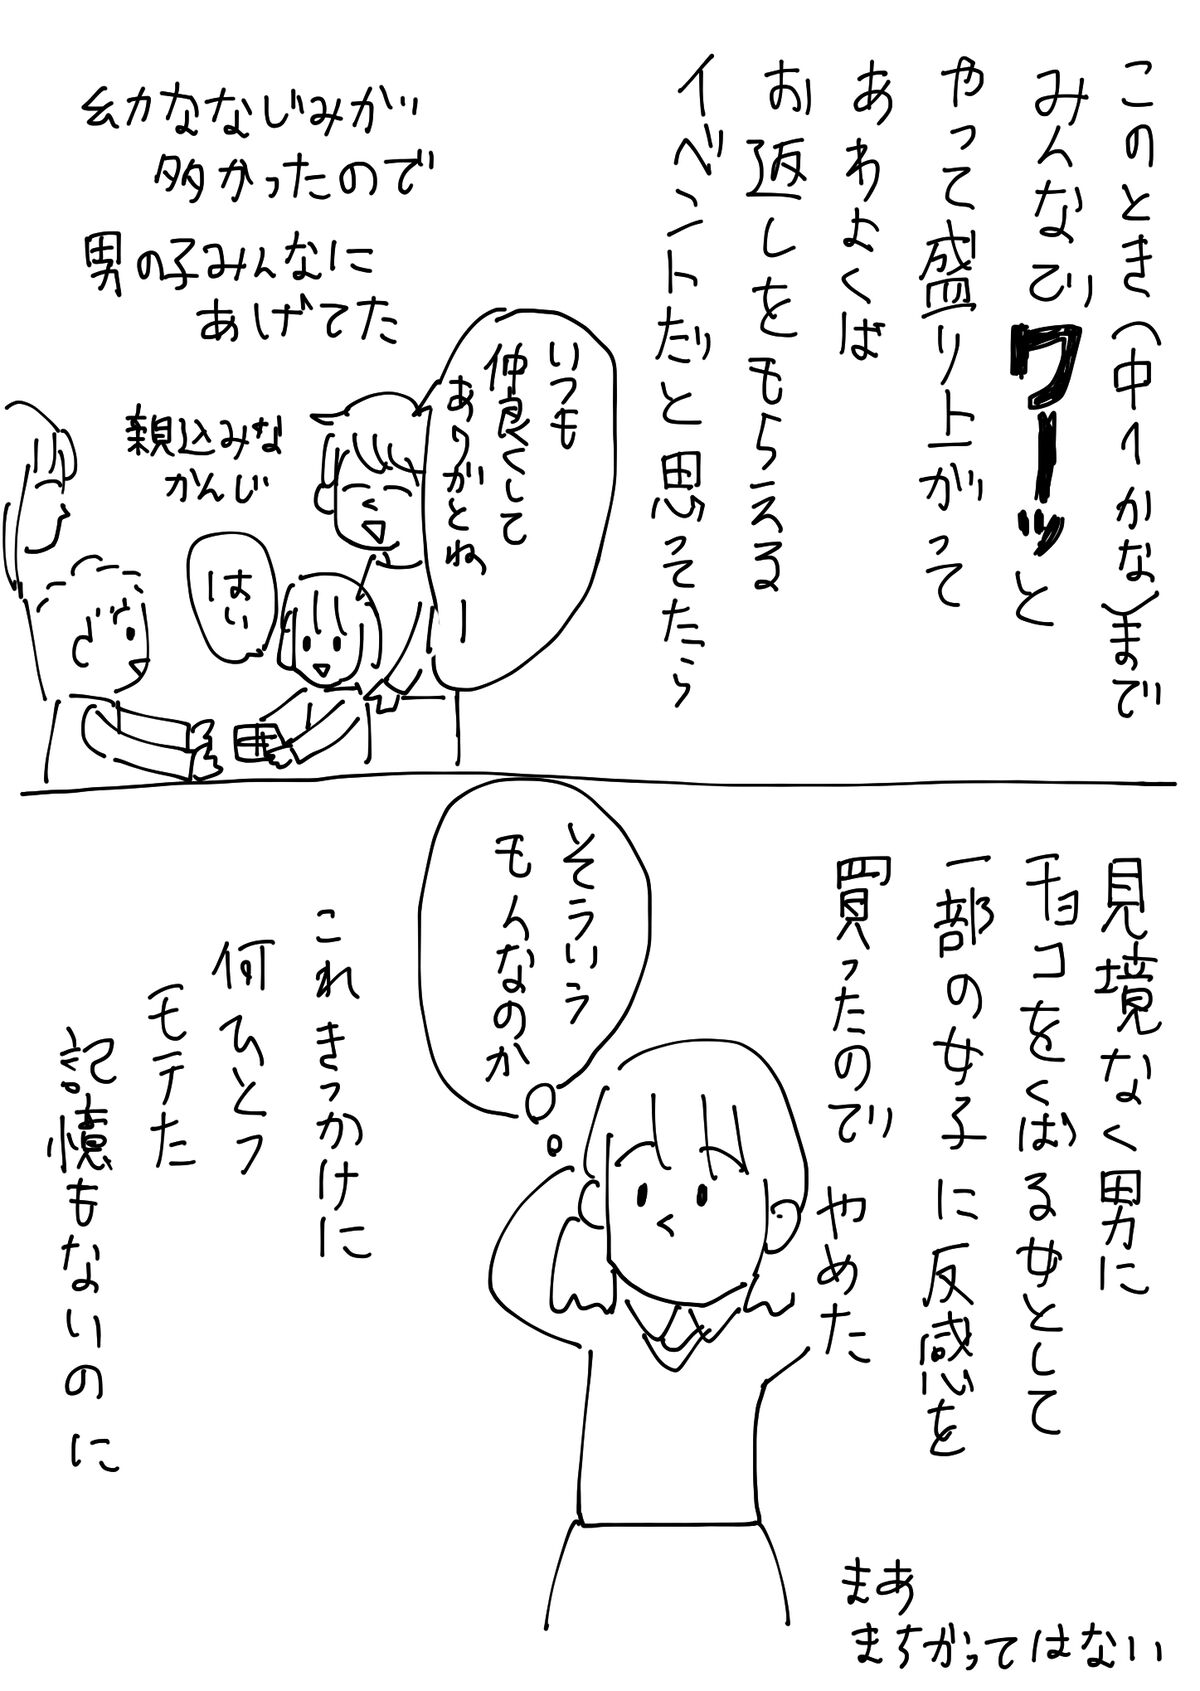 このとき(中1かな)まで
みんなでワーッと
やって盛り上がって
あわよくば
お返しをもらえる
イベントだと思ってたら
いつも
仲良くして
ありがとねー
幼ななじみが
多かったので
男の子みんなに
あげてた
親込みな
かんじ
はい
見境なく男に
チョコをくばる女として
一部の女子に反感を
買ったので やめた
そういう
もんなのか
これきっかけに
何ひとつ
モテた
記憶もないのに
まあ
まちがってはない